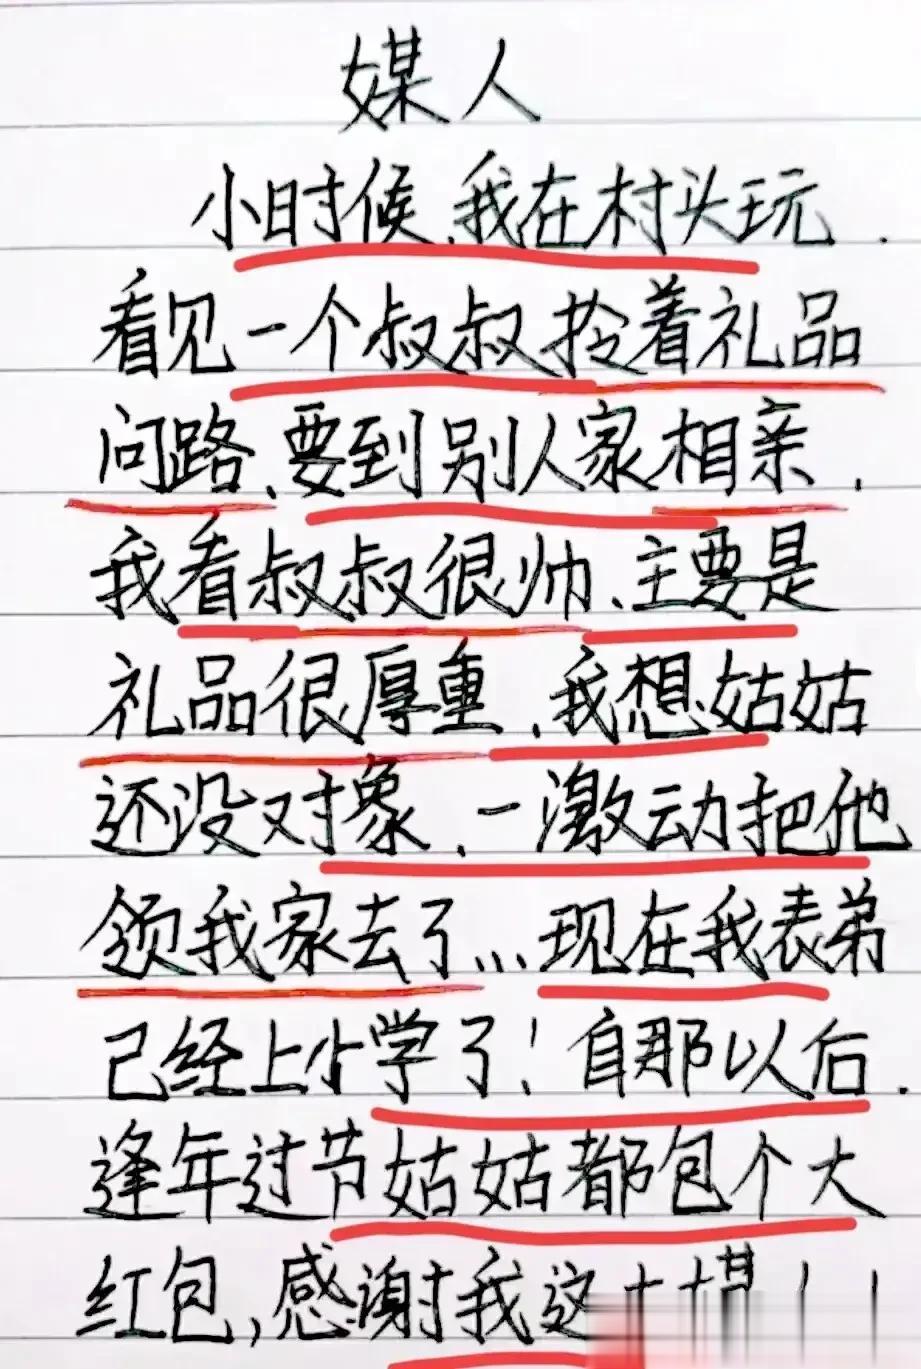 媒人
小时候、我在村头玩.
看见一个叔叔拎着礼品
问路、要到别人家相亲.
我看叔叔很帅、主要是
礼品很厚重、我想姑姑
还没对象、一激动把他
领我家去了...现在我表弟
已经上小学了!自那以后.
逢年过节姑姑都包个大
红包,感谢我这